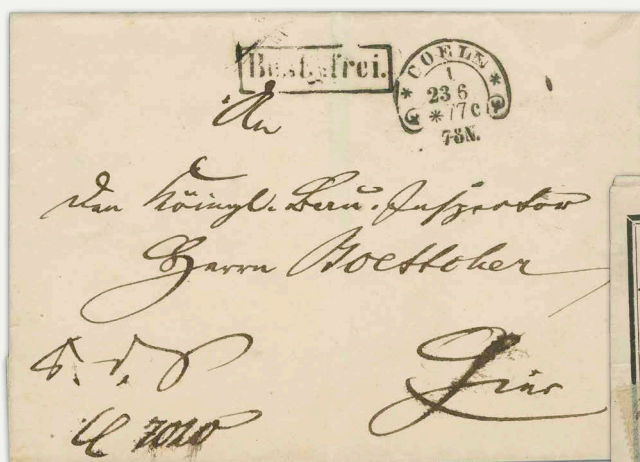 Bestgfrei.
* COELN *
1
23 6
*77c
7-8N.
An
den Königl. Bau. Inspector
Herrn Boettcher
Hier
7020